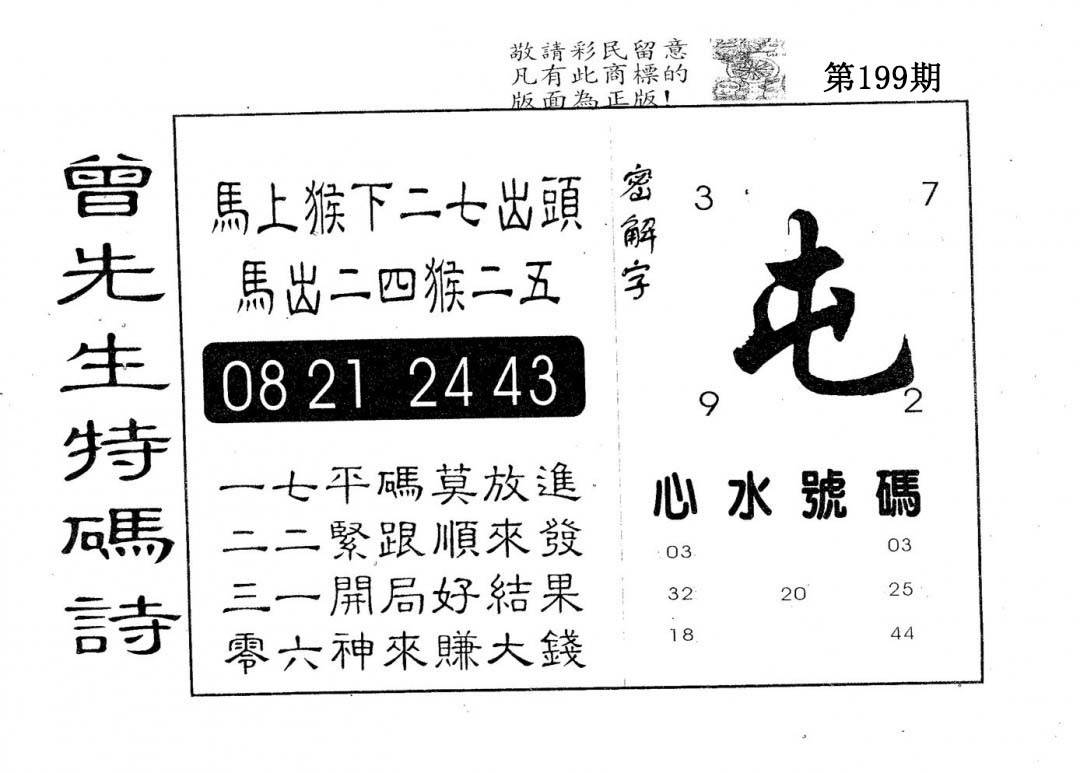 敬請彩民留意
凡有此商標的
版面為正版!
第199期
曾先生特碼詩
馬上猴下二七出頭
馬出二四猴二五
08 21 24 43
一七平碼莫放進
二二緊跟順來發
三一開局好結果
零六神來賺大錢
密解字
3 7
屯
9 2
心水號碼
03 03
32 20 25
18 44